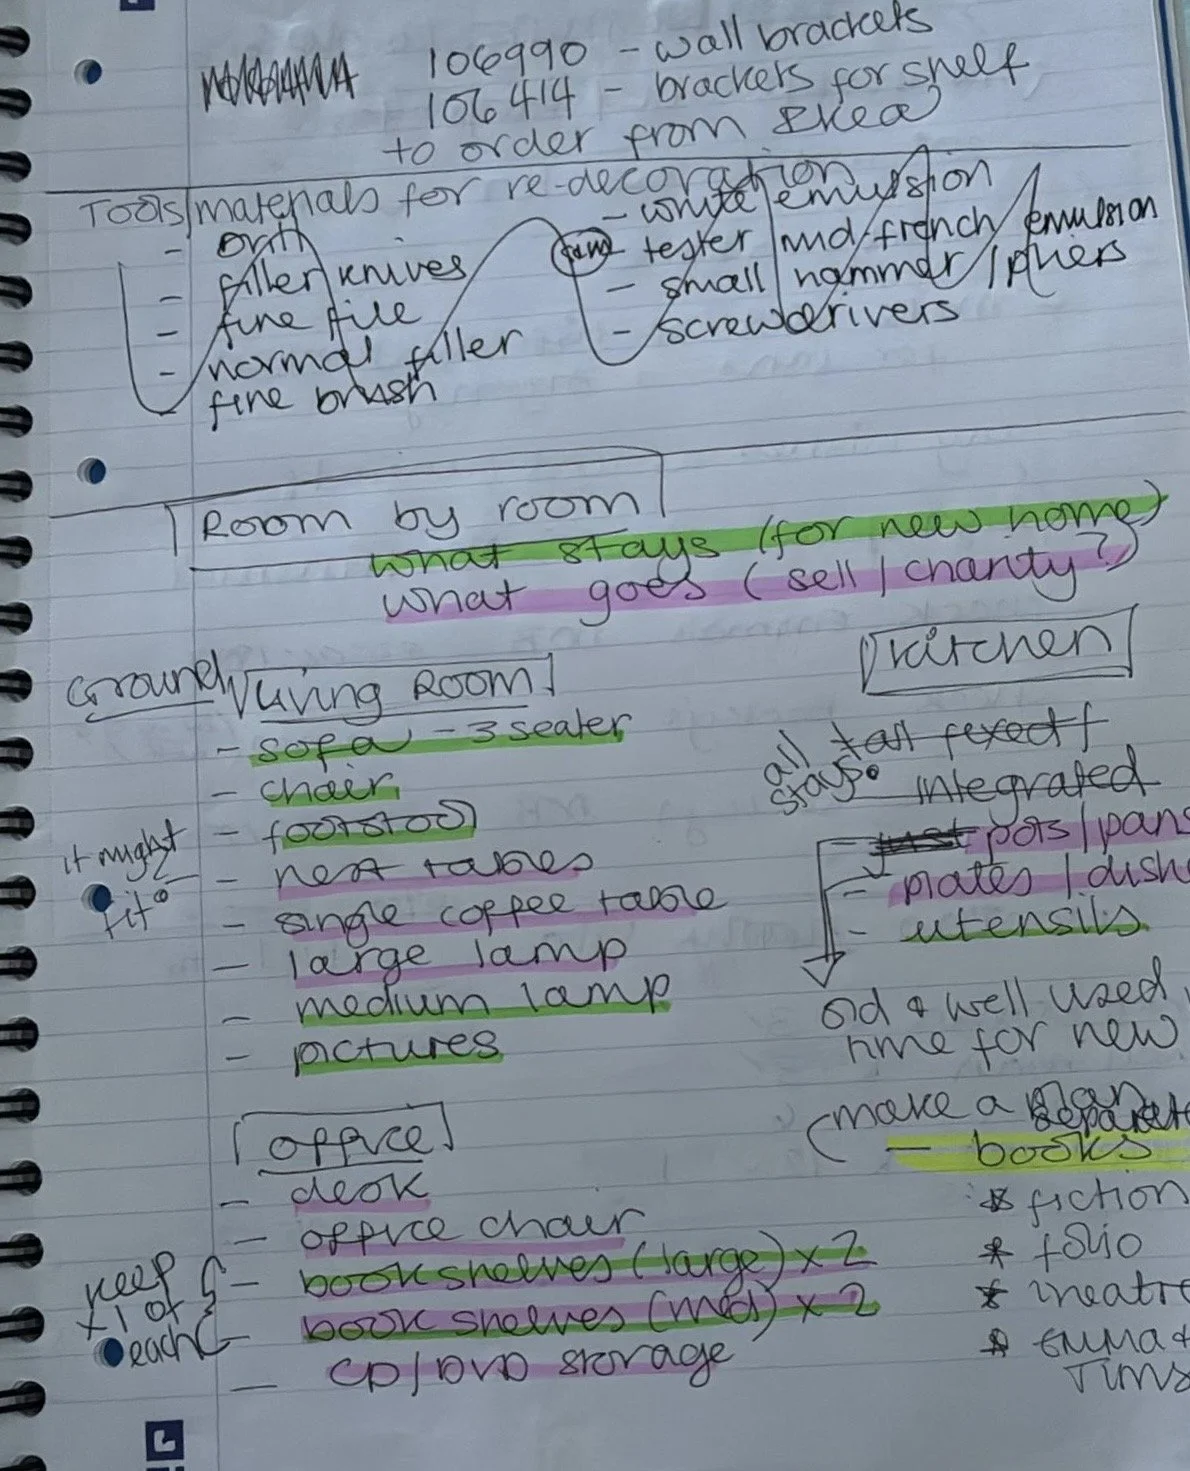 106990 - wall brackets
106414 - brackets for shelf
to order from Ikea
Tools/materials for re-decoration
- filler knives
- fine file
- normal filler
- fine brush
- white emulsion
- tester mid/french/emulsion
- small hammer/pliers
- screwderivers
Room by room
what stays (for new home)
what goes (sell/charity?)
Ground
Living Room
- sofa - 3 seater
- chair
- footstool
it might fit
- nest tables
- single coffee table
- large lamp
- medium lamp
- pictures
Kitchen
all stays
integrated
pots/pans
- plates/dish
- utensils
old & well used,
time for new
Office
- desk
- office chair
keep x1 of each
- book shelves (large) x 2
- book shelves (med) x 2
- CD/DVD storage
(make a plan
separate
- books
* fiction
* folio
* theatre
* emma &
Tims